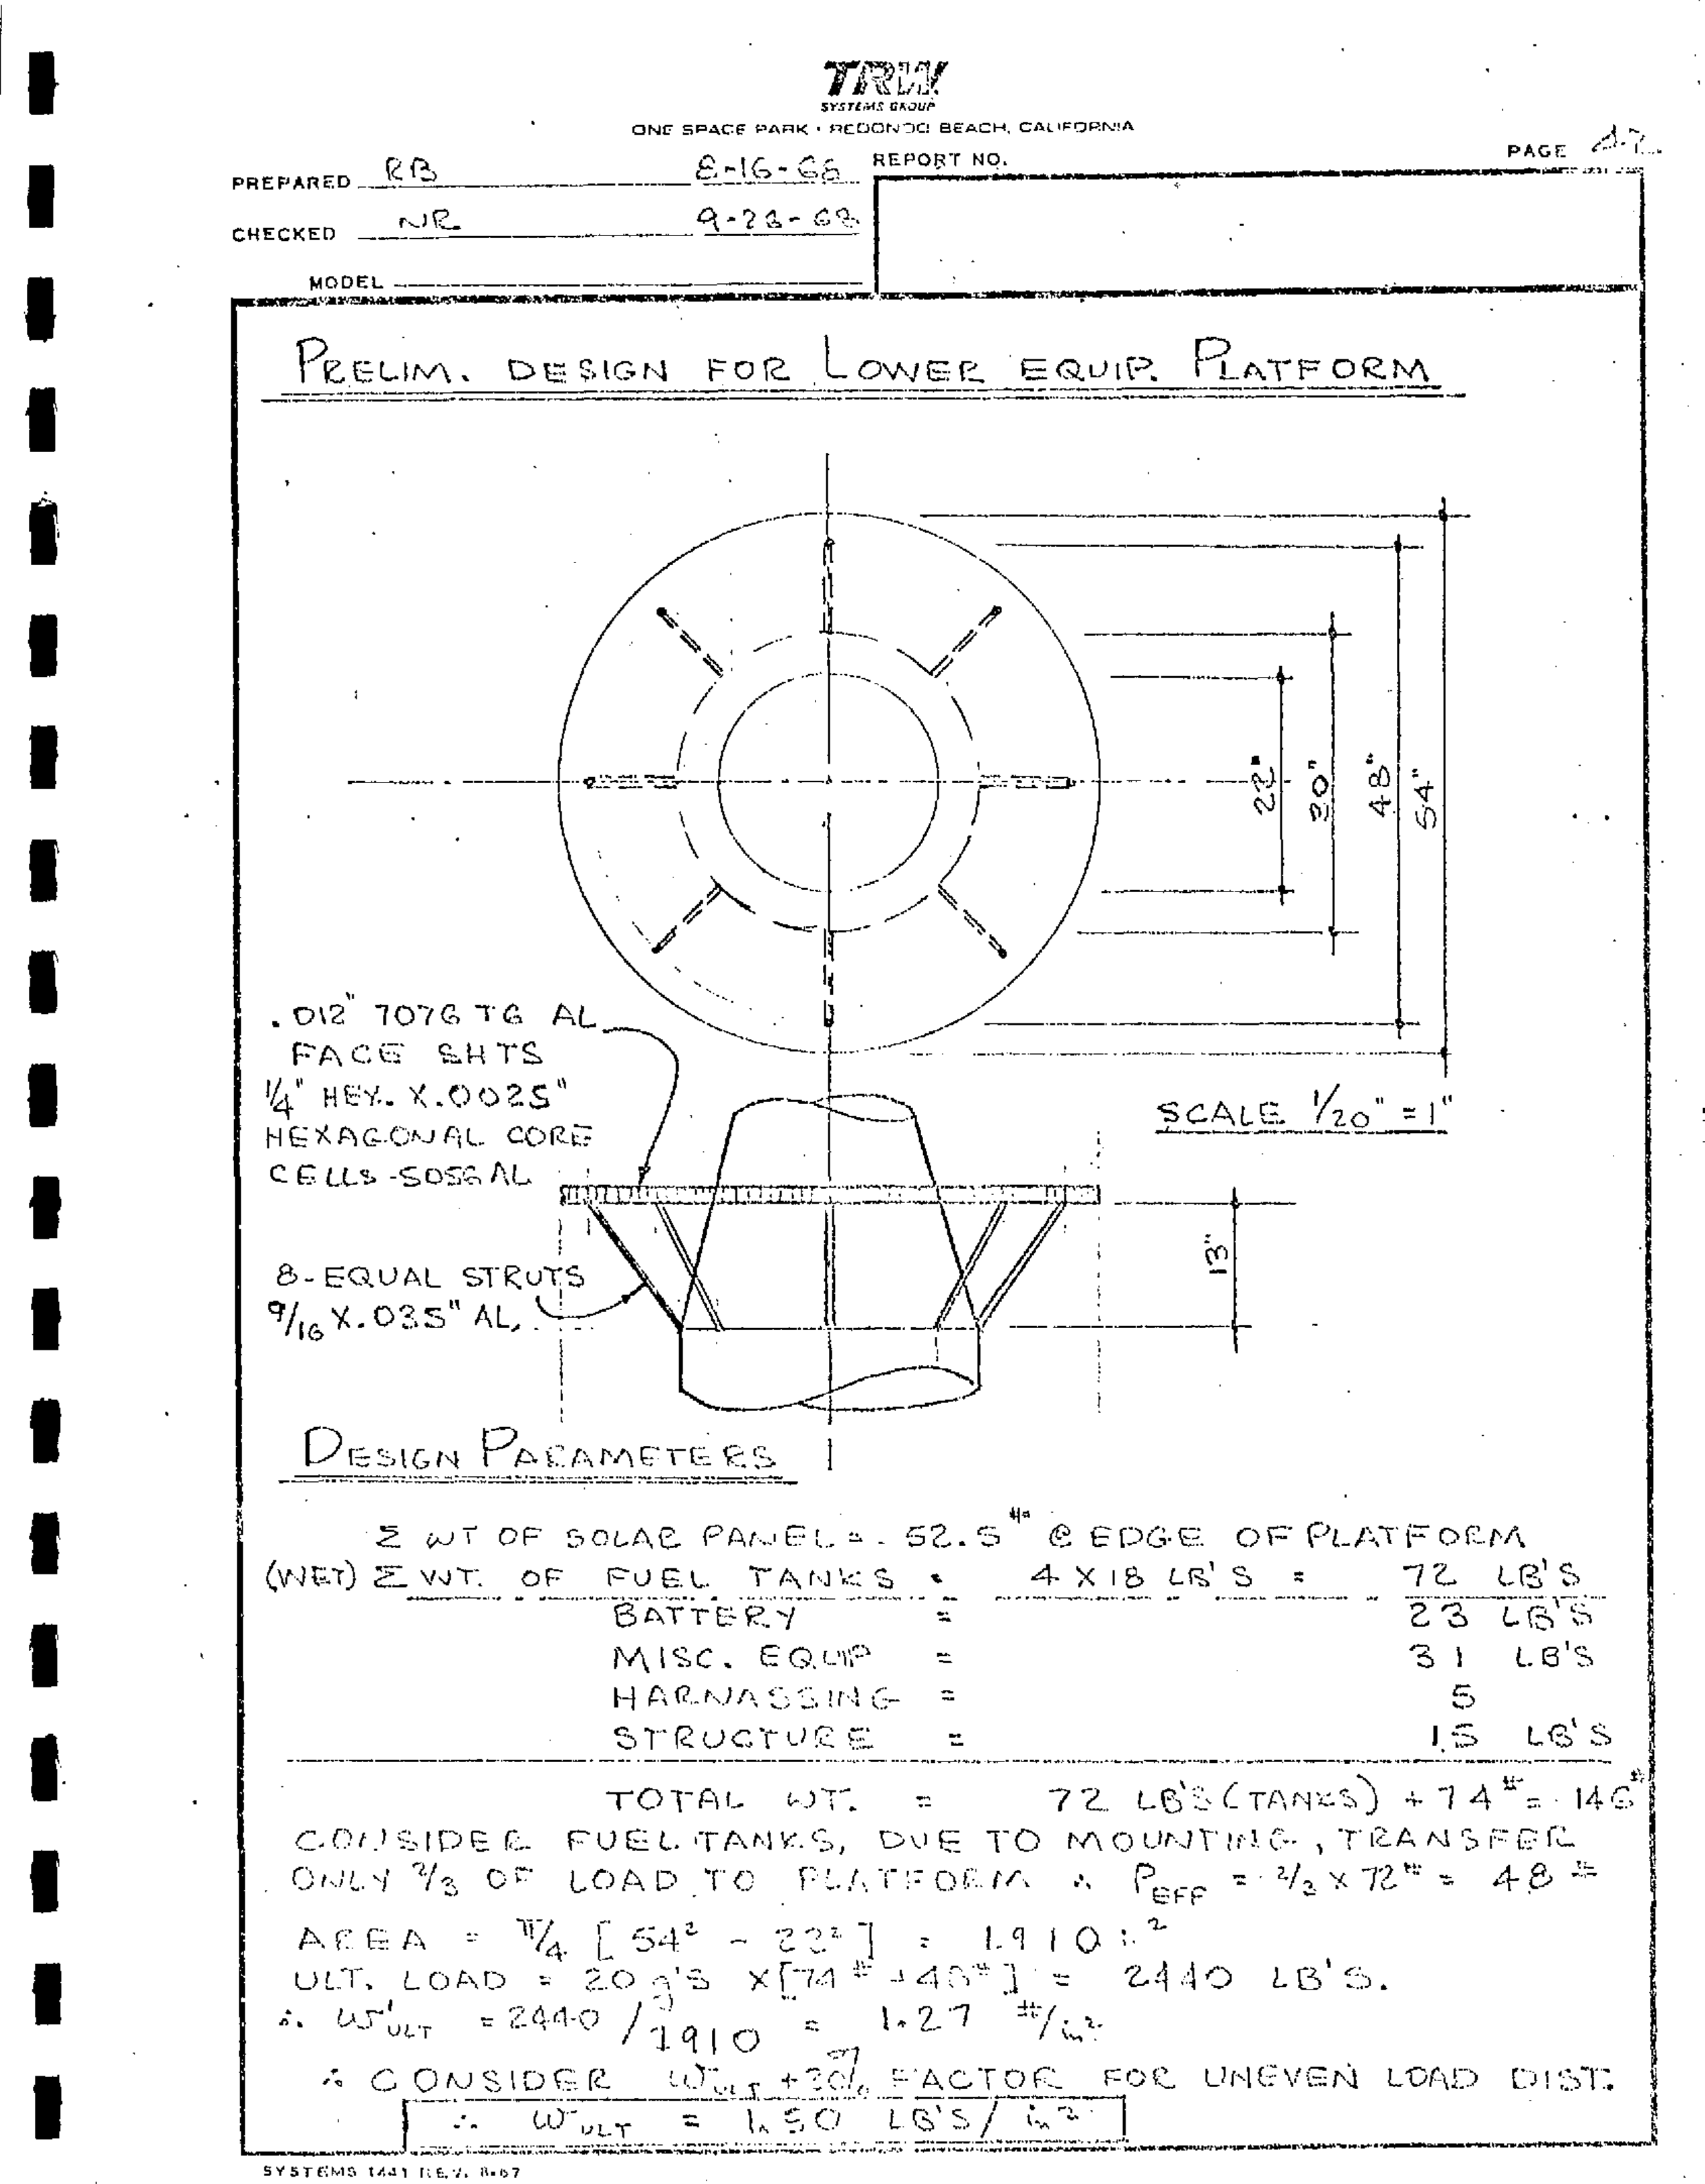 TRW
SYSTEMS GROUP
ONE SPACE PARK • REDONDO BEACH, CALIFORNIA
PREPARED RB 8-16-68 REPORT NO. PAGE
CHECKED NR 9-23-68
MODEL
PRELIM. DESIGN FOR LOWER EQUIP. PLATFORM
22"
30"
48"
54"
.012" 7076 T6 AL
FACE SHTS
1/4" HEX. X .0025"
HEXAGONAL CORE
CELLS - 5056 AL
SCALE 1/20" = 1"
13"
8 - EQUAL STRUTS
9/16 X .035" AL.
DESIGN PARAMETERS
Σ WT OF SOLAR PANEL = 52.5 # @ EDGE OF PLATFORM
(WET) Σ WT. OF FUEL TANKS = 4 X 18 LB'S = 72 LB'S
BATTERY = 23 LB'S
MISC. EQUIP = 31 LB'S
HARNASSING = 5
STRUCTURE = 15 LB'S
TOTAL WT. = 72 LB'S (TANKS) + 74 # = 146 #
CONSIDER FUEL TANKS, DUE TO MOUNTING, TRANSFER
ONLY 2/3 OF LOAD TO PLATFORM ∴ P EFF = 2/3 X 72 # = 48 #
AREA = π/4 [54² - 22²] = 1910 in²
ULT. LOAD = 20 g'S X [74 # + 48 #] = 2440 LB'S.
∴ W'ULT = 2440 / 1910 = 1.27 #/in²
∴ CONSIDER W'ULT + 20% FACTOR FOR UNEVEN LOAD DIST.
∴ W ULT = 1.50 LB'S / in²
SYSTEMS 1441 REV. 8-67